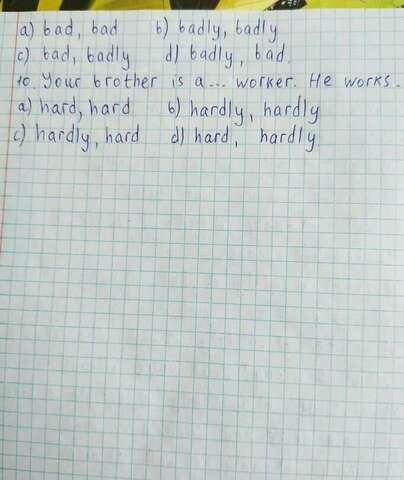 a) bad, bad b) badly, badly
c) bad, badly d) badly, bad.
10. Your brother is a... worker. He works.
a) hard, hard b) hardly, hardly
c) hardly, hard d) hard, hardly